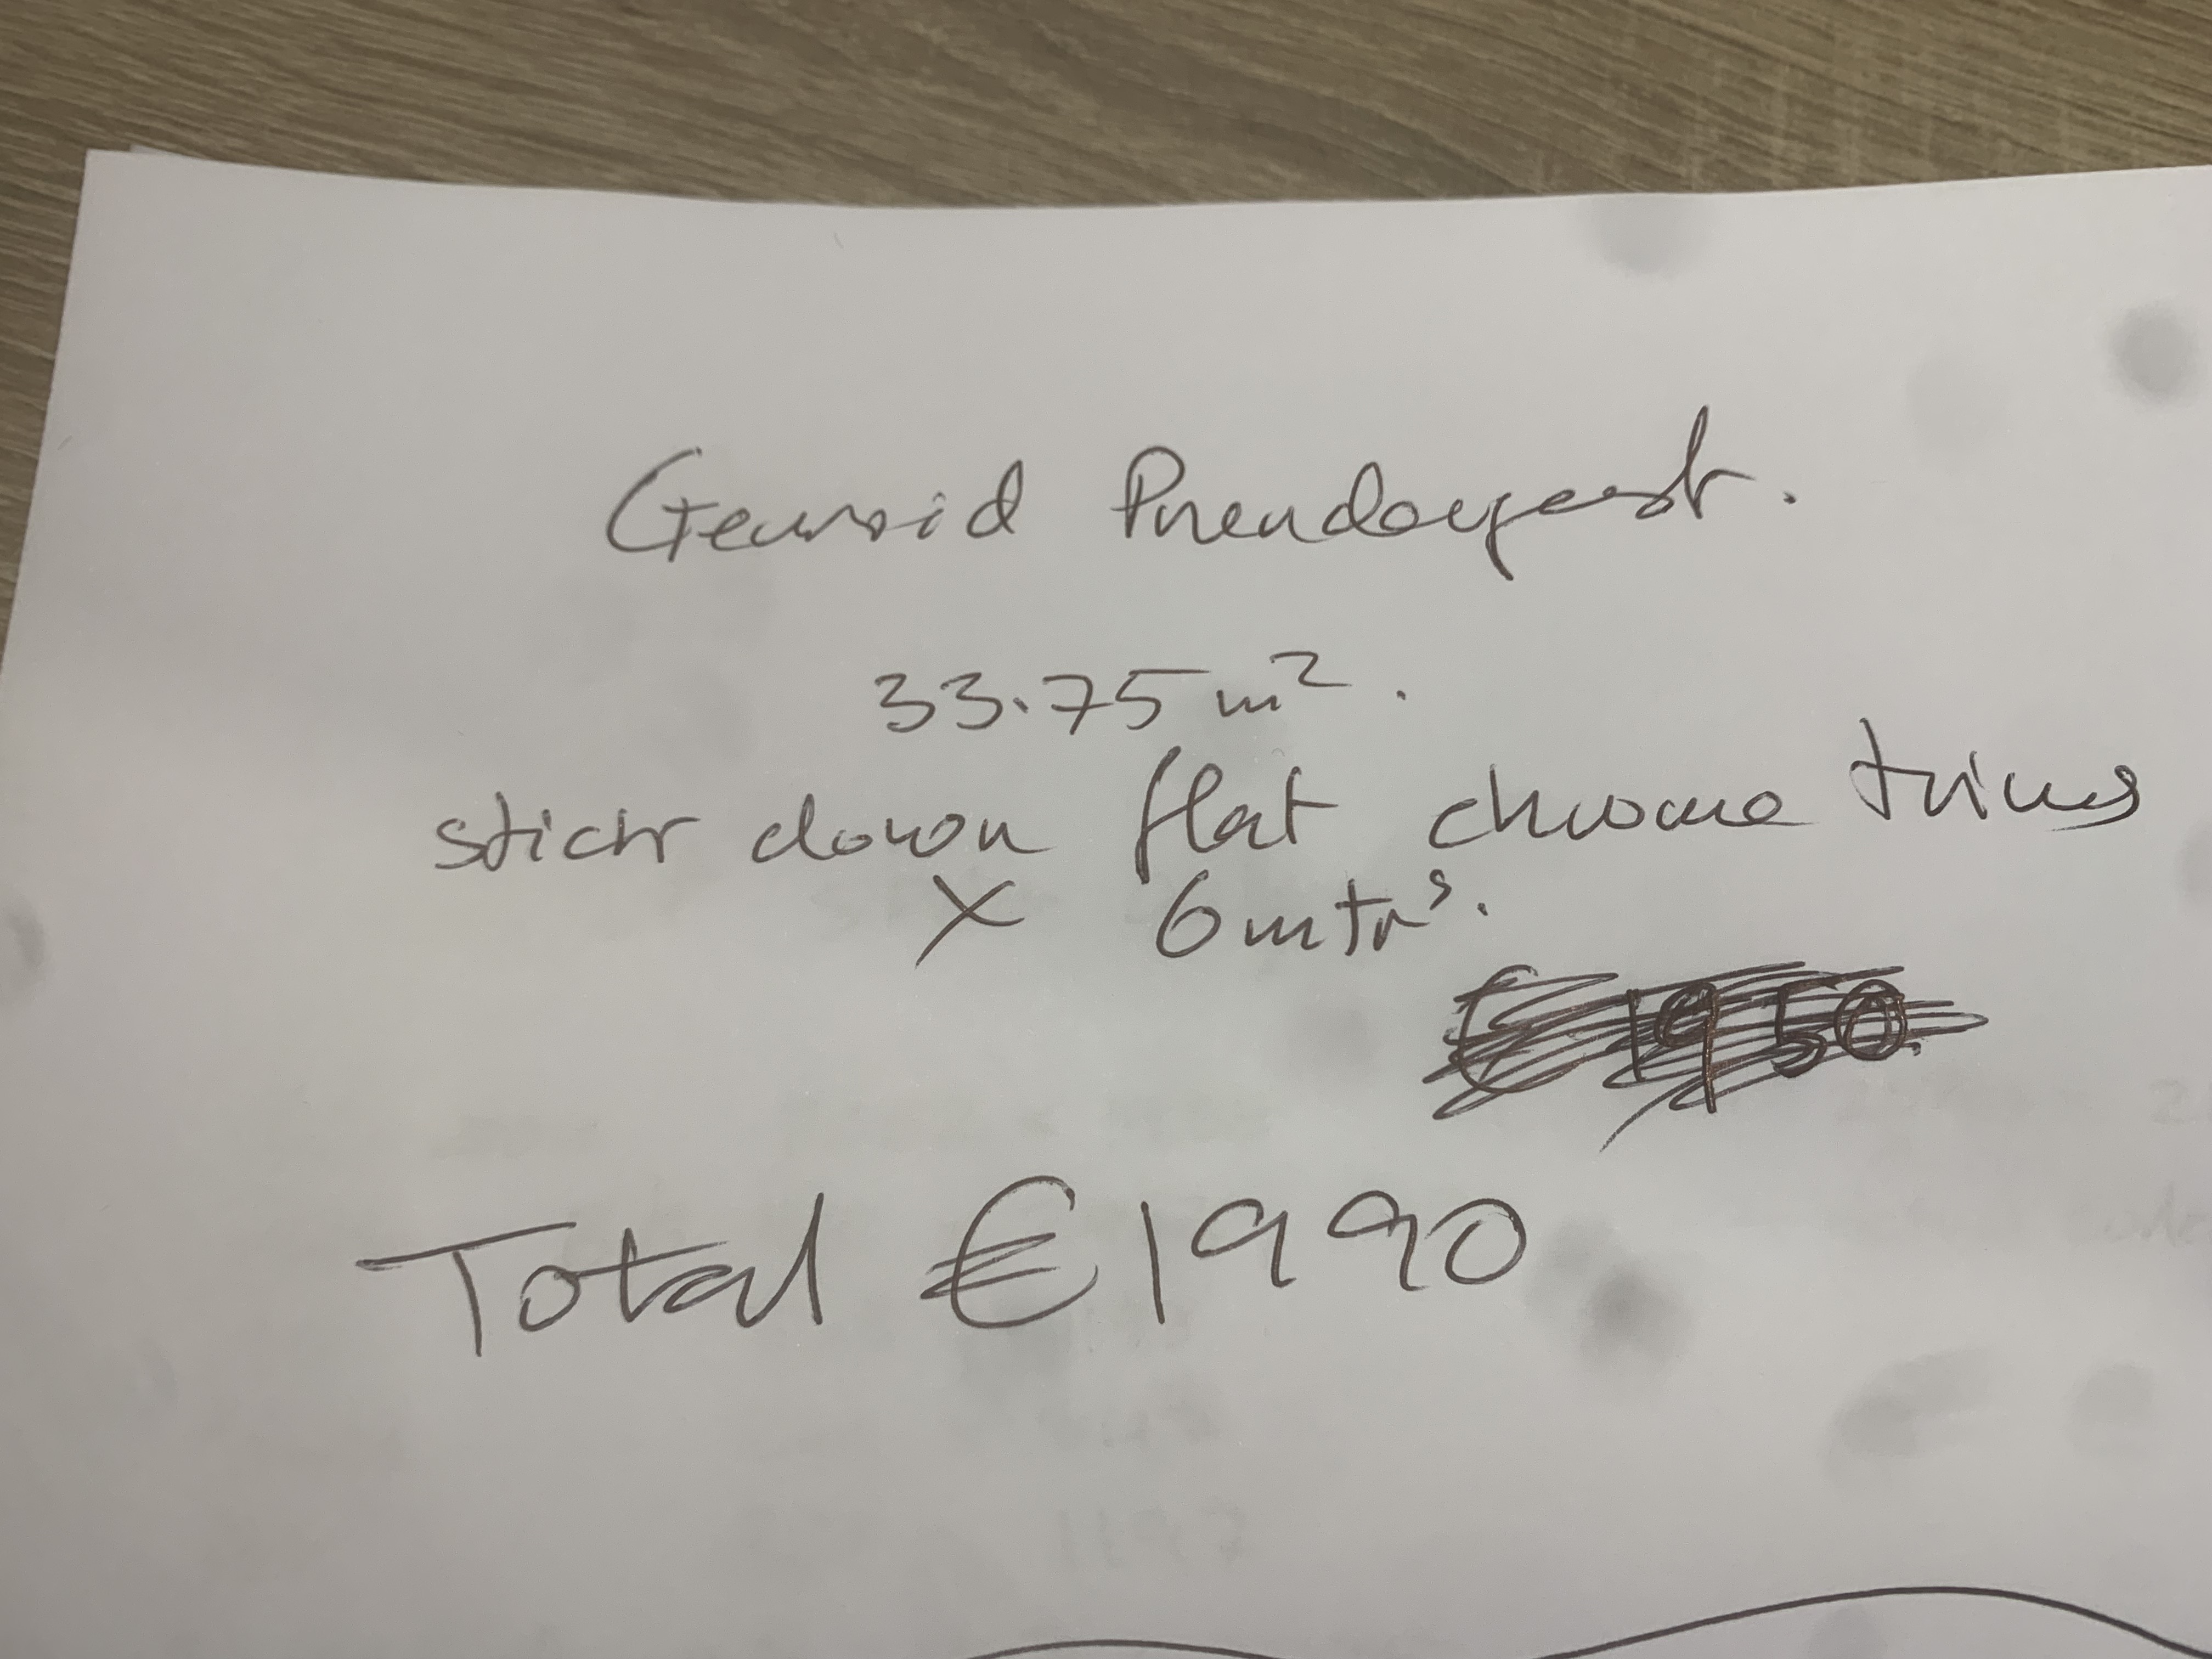 Gearoid Prendergast.
33.75 m².
stick down flat chrome trims
X 6mtrs.
€1950
Total €1990